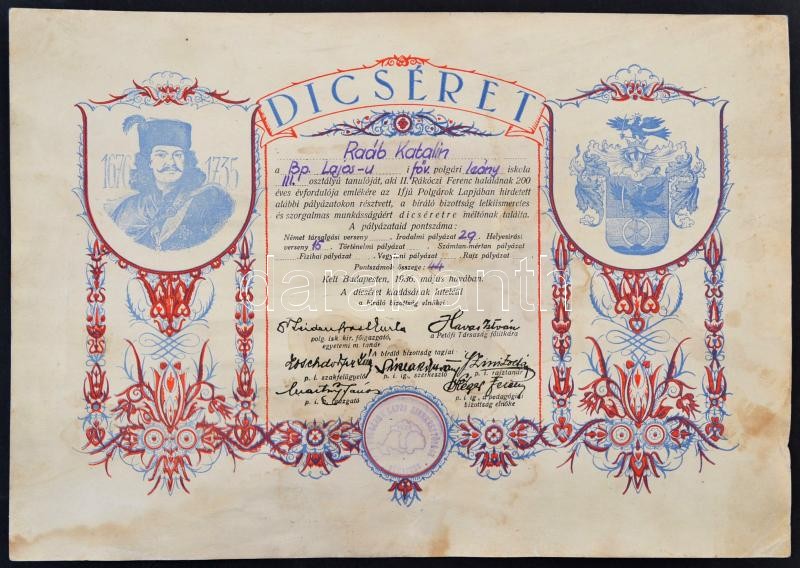 DICSÉRET
1676 1735
Raáb Katalin
a Bp. Lajos-u i főv. polgári leány iskola
III. osztályú tanulóját, aki II. Rákóczi Ferenc halálának 200
éves évfordulója emlékére az Ifjú Polgárok Lapjában hirdetett
alábbi pályázatokon résztvett, a bíráló bizottság lelkiismeretes
és szorgalmas munkásságáért dicséretre méltónak találta.
A pályázataid pontszáma:
Német társalgási verseny Irodalmi pályázat 29. Helyesírási
verseny 15 Történelmi pályázat Számtan-mértan pályázat
Fizikai pályázat Vegytani pályázat Rajz pályázat
Pontszámok összege: 44
Kelt Budapesten, 1936. május havában.
A dicséret kiadásának hiteléül
a bíráló bizottság elnökei:
Havas István
polg. isk. kir. főigazgató, a Petőfi Társaság főtitkára
egyetemi m. tanár
A bíráló bizottság tagjai
p. i. szakfelügyelő p. i. ig., szerkesztő p. i. rajztanár
János Ferenc
p. i. igazgató p. i. ig., a pedagógiai
bizottság elnöke
darabanth